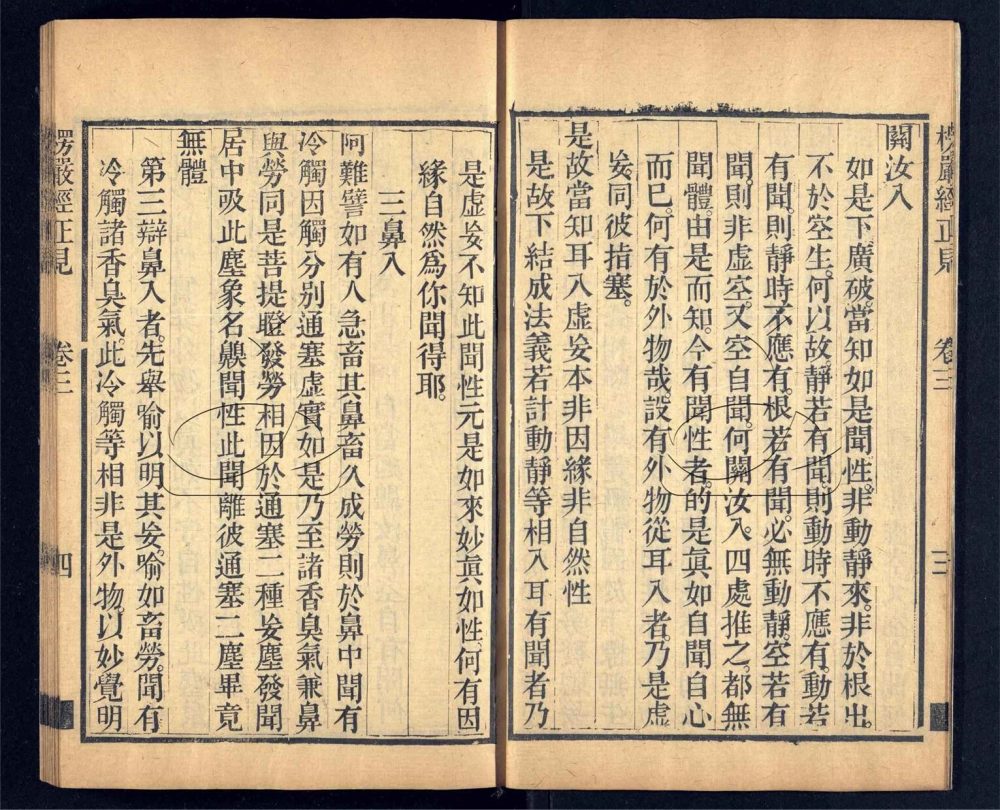 楞嚴經正見 卷三 三
關汝入
如是下廣破。當知如是聞性。非動靜來。非於根出。
不於空生。何以故。靜若有聞。則動時不應有。動若
有聞。則靜時不應有。根若有聞。必無動靜。空若有
聞。則非虛空。又空自聞。何關汝入。四處推之。都無
聞體。由是而知。今有聞性者。的是眞如自聞自心
而已。何有於外物哉。設有外物從耳入者。乃是虛
妄。同彼指塞。
是故當知耳入虛妄本非因緣非自然性
是故下結成法義若計動靜等相入耳有聞者乃
是虛妄不知此聞性元是如來妙眞如性。何有因
緣自然爲你聞得耶。
三鼻入
阿難譬如有人急畜其鼻畜久成勞則於鼻中聞有
冷觸因觸分别通塞虛實如是乃至諸香臭氣兼鼻
與勞同是菩提瞪發勞相因於通塞二種妄塵發聞
居中吸此塵象名齅聞性此聞離彼通塞二塵畢竟
無體
第三辯鼻入者。先舉喻以明其妄。喻如畜勞。聞有
冷觸諸香臭氣。此冷觸等相非是外物。以妙覺明
楞嚴經正見 卷三 四